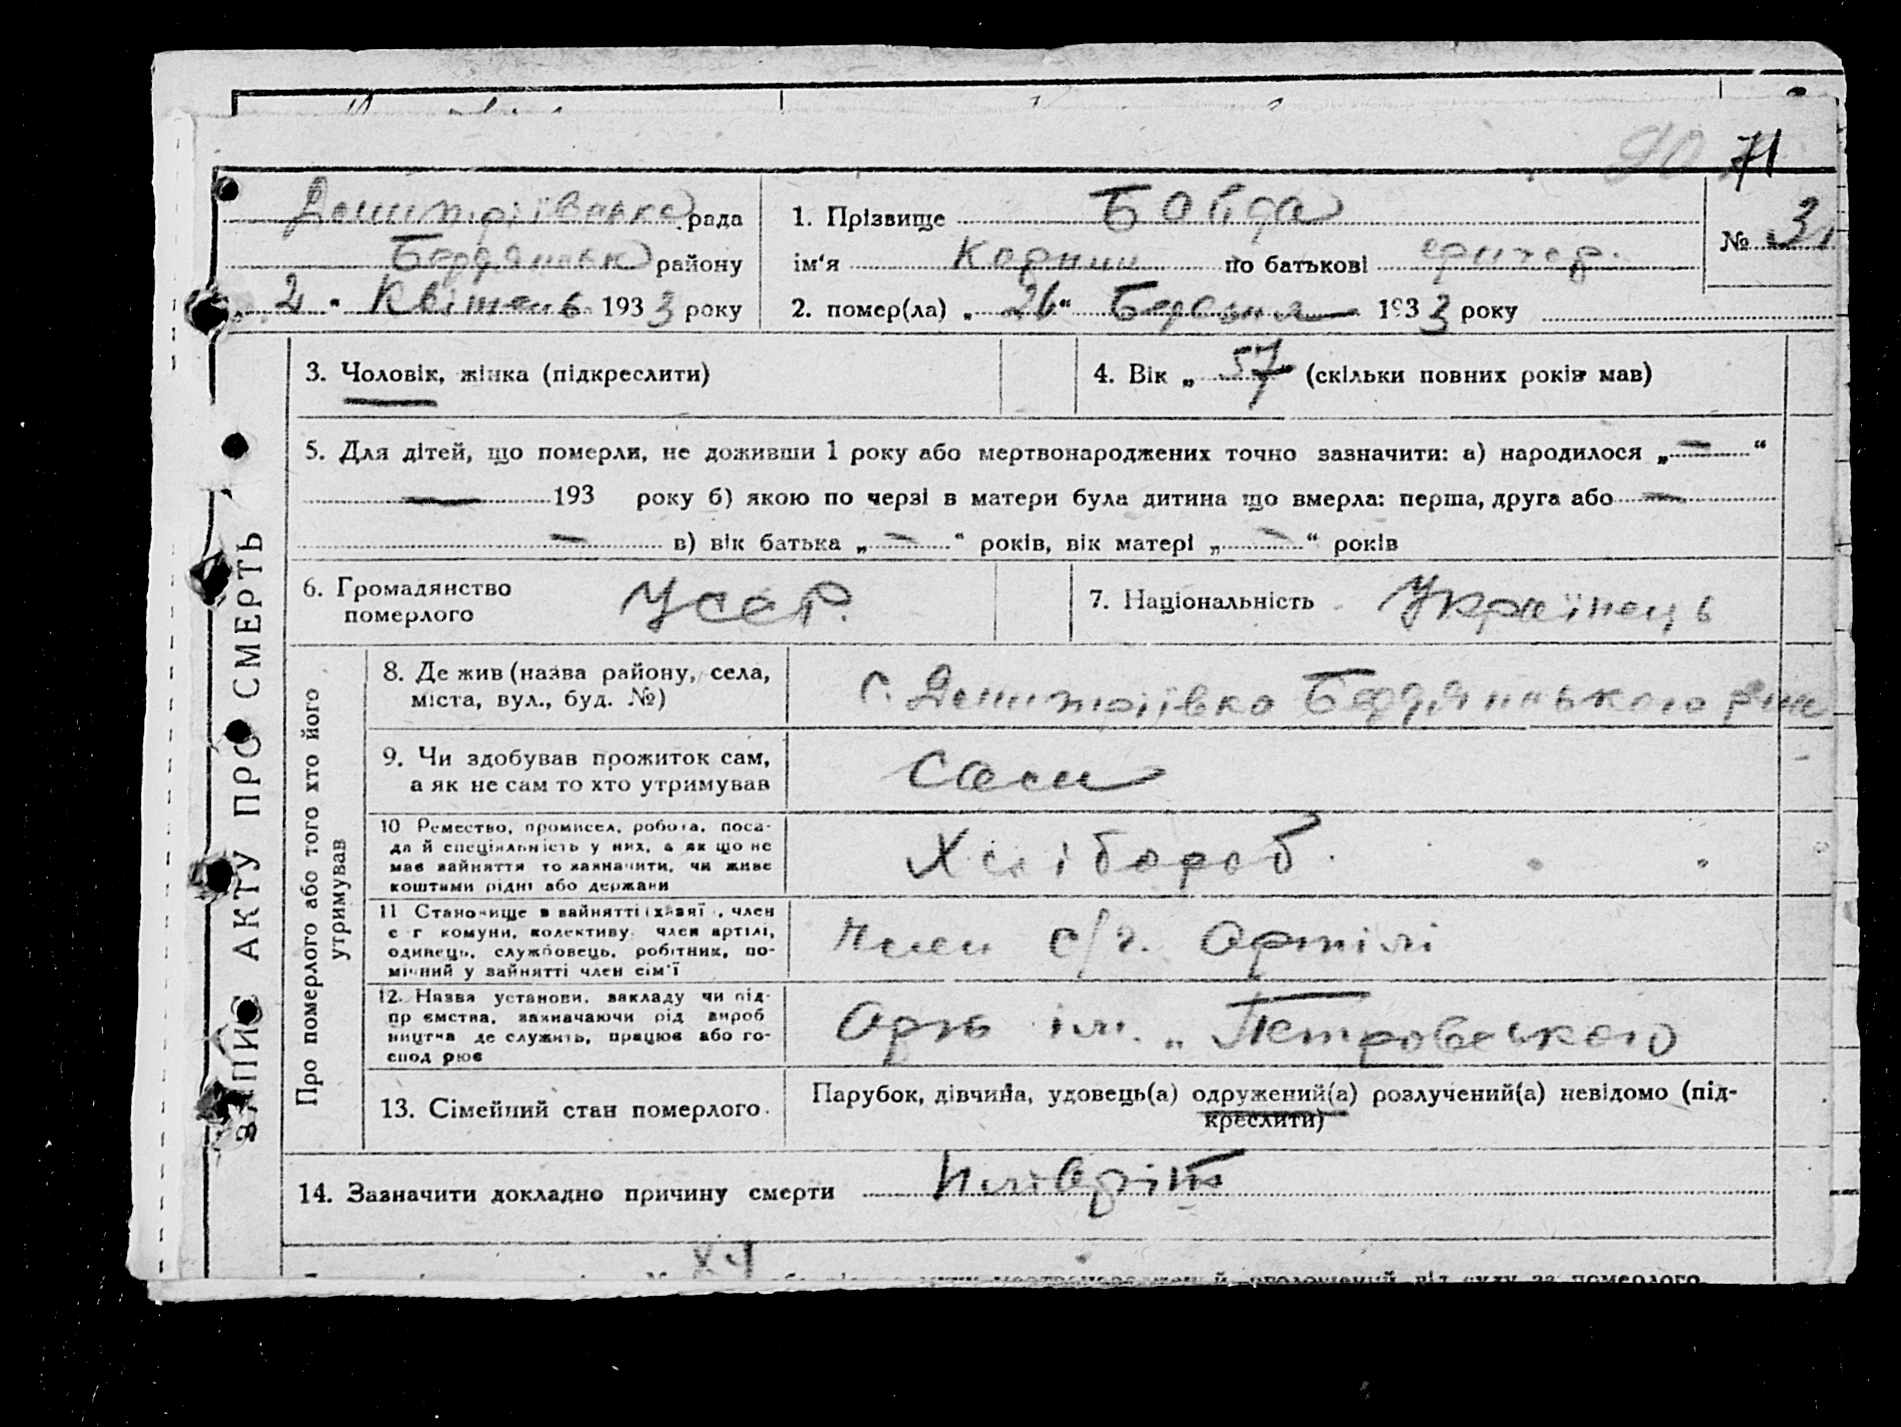 71
Дмитріівська рада
Бердянськ району
„ 2 " Квітень 1933 року
1. Прізвище Бойда
№ 31
ім'я Корний по батькові
2. помер(ла) „ 26 " Березня 1933 року
3. Чоловік, жінка (підкреслити)
4. Вік „ 57 " (скільки повних років мав)
5. Для дітей, що померли, не доживши 1 року або мертвонароджених точно зазначити: а) народилося „ — "
— 193 року б) якою по черзі в матери була дитина що вмерла: перша, друга або —
— в) вік батька „ — " років, вік матері „ — " років
6. Громадянство
померлого
УССР.
7. Національність Українець
ЗАПИС АКТУ ПРО СМЕРТЬ
Про померлого або того хто його
утримував
8. Де жив (назва району, села,
міста, вул., буд. №)
с. Дмитріівка Бердянського р-ну
9. Чи здобував прожиток сам,
а як не сам то хто утримував
Сам
10 Ремество, промисел, робота, поса-
да й спеціяльність у них, а як що не
має зайняття то зазначити, чи живе
коштами рідні або держави
Хлібороб
11 Становище в зайнятті (хазяї), член
с г комуни, колективу, член артілі,
одинець, службовець, робітник, по-
мічний у зайнятті член сім'ї
Член с/г. Артілі
12. Назва установи, закладу чи під-
пр ємства, зазначаючи рід вироб
ництва де служить, працює або го-
спод рює
Арт. ім. „Петровського
13. Сімейний стан померлого.
Парубок, дівчина, удовець(а) одружений(а) розлучений(а) невідомо (під-
креслити)
14. Зазначити докладно причину смерти